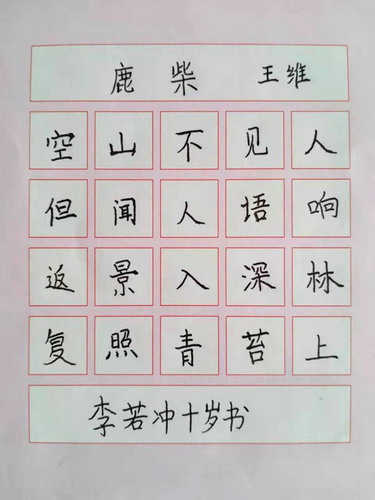 鹿柴 王维
空山不见人
但闻人语响
返景入深林
复照青苔上
李若冲十岁书